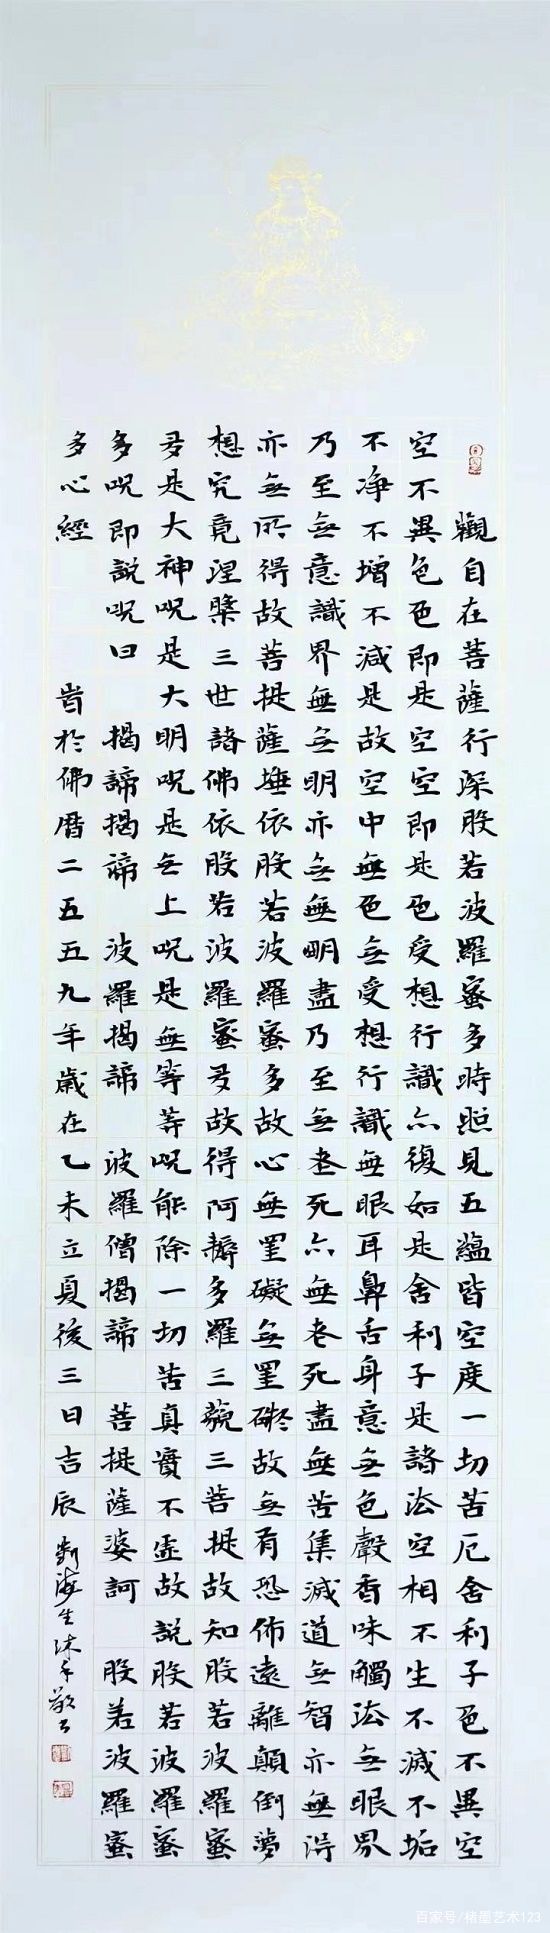 觀自在菩薩行深般若波羅蜜多時照見五蘊皆空度一切苦厄舍利子色不異空
空不異色色即是空空即是色受想行識亦復如是舍利子是諸法空相不生不滅不垢
不净不增不減是故空中無色無受想行識無眼耳鼻舌身意無色聲香味觸法無眼界
乃至無意識界無無明亦無無明盡乃至無老死亦無老死盡無苦集滅道無智亦無得
亦無所得故菩提薩埵依般若波羅蜜多故心無罣礙無罣礙故無有恐佈遠離顛倒夢
想究竟涅槃三世諸佛依般若波羅蜜多故得阿耨多羅三藐三菩提故知般若波羅蜜
多是大神呪是大明呪是無上呪是無等等呪能除一切苦真實不虛故說般若波羅蜜
多呪即說呪曰 揭諦揭諦 波羅揭諦 波羅僧揭諦 菩提薩婆訶 般若波羅蜜
多心經 旹於佛曆二五五九年歲在乙未立夏後三日吉辰 劉海生沐手敬書
百家号/楮墨艺术123